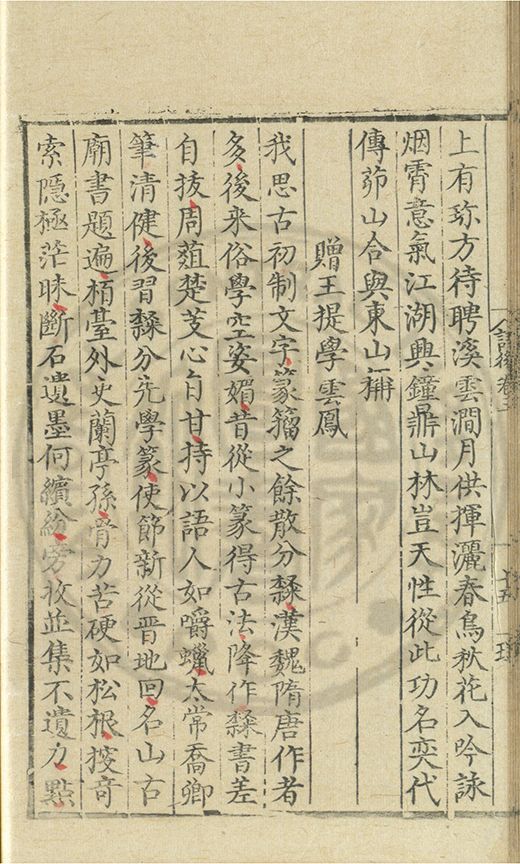 上有珎方待聘溪雲澗月供揮灑春鳥秋花入吟詠
烟霄意氣江湖興鐘鼎山林豈天性從此功名奕代
傳茆山合與東山稱
贈王提學雲鳳
我思古初制文字篆籀之餘散分隸漢魏隋唐作者
多後来俗學空姿媚昔從小篆得古法降作隸書差
自拔周葅楚芰心自甘持以語人如嚼蠟太常喬卿
筆清健後習隸分先學篆使節新從晋地回名山古
廟書題遍栢臺外史蘭亭孫骨力苦硬如松根搜竒
索隱極茫昧斷石遺墨何繽紛旁收並集不遺力點